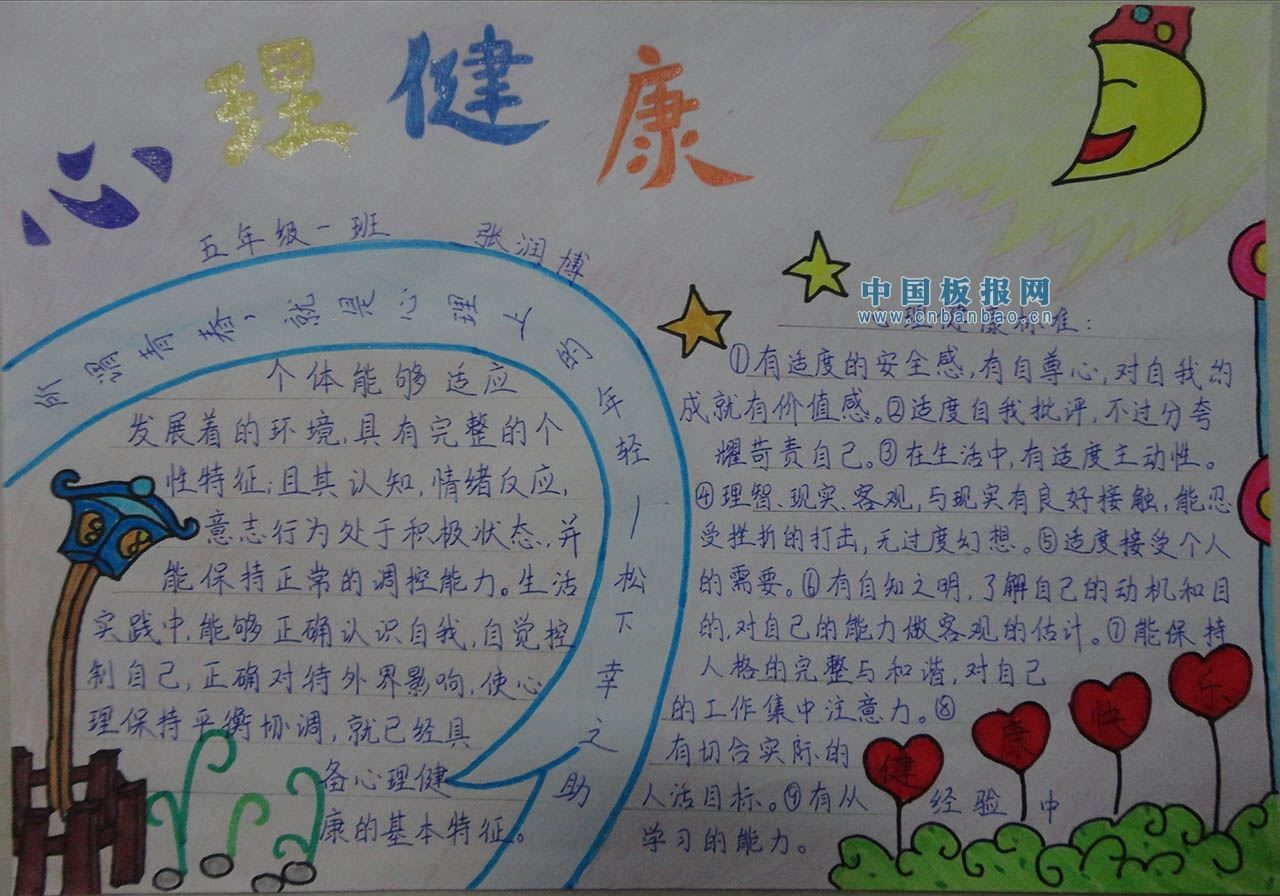 心理健康
五年级一班 张润博
所谓青春，就是心理上的年轻——松下幸之助
个体能够适应
发展着的环境，具有完整的个
性特征；且其认知，情绪反应，
意志行为处于积极状态，并
能保持正常的调控能力。生活
实践中，能够正确认识自我，自觉控
制自己，正确对待外界影响，使心
理保持平衡协调，就已经具
备心理健
康的基本特征。
中国板报网
www.cnbanbao.cn
心理健康标准：
①有适度的安全感，有自尊心，对自我的
成就有价值感。②适度自我批评，不过分夸
耀苛责自己。③在生活中，有适度主动性。
④理智、现实、客观，与现实有良好接触，能忍
受挫折的打击，无过度幻想。⑤适度接受个人
的需要。⑥有自知之明，了解自己的动机和目
的，对自己的能力做客观的估计。⑦能保持
人格的完整与和谐，对自己
的工作集中注意力。⑧
有切合实际的
人活目标。⑨有从经验中
学习的能力。
健康快乐